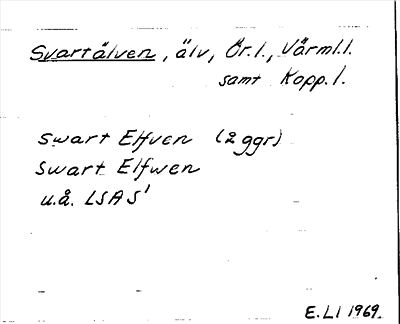 Svartälven, älv, Ör.l., Värml.l.
samt Kopp.l.
Swart Elfven (2 ggr)
Swart Elfwen
u.å. LSAS'
E.LI 1969.